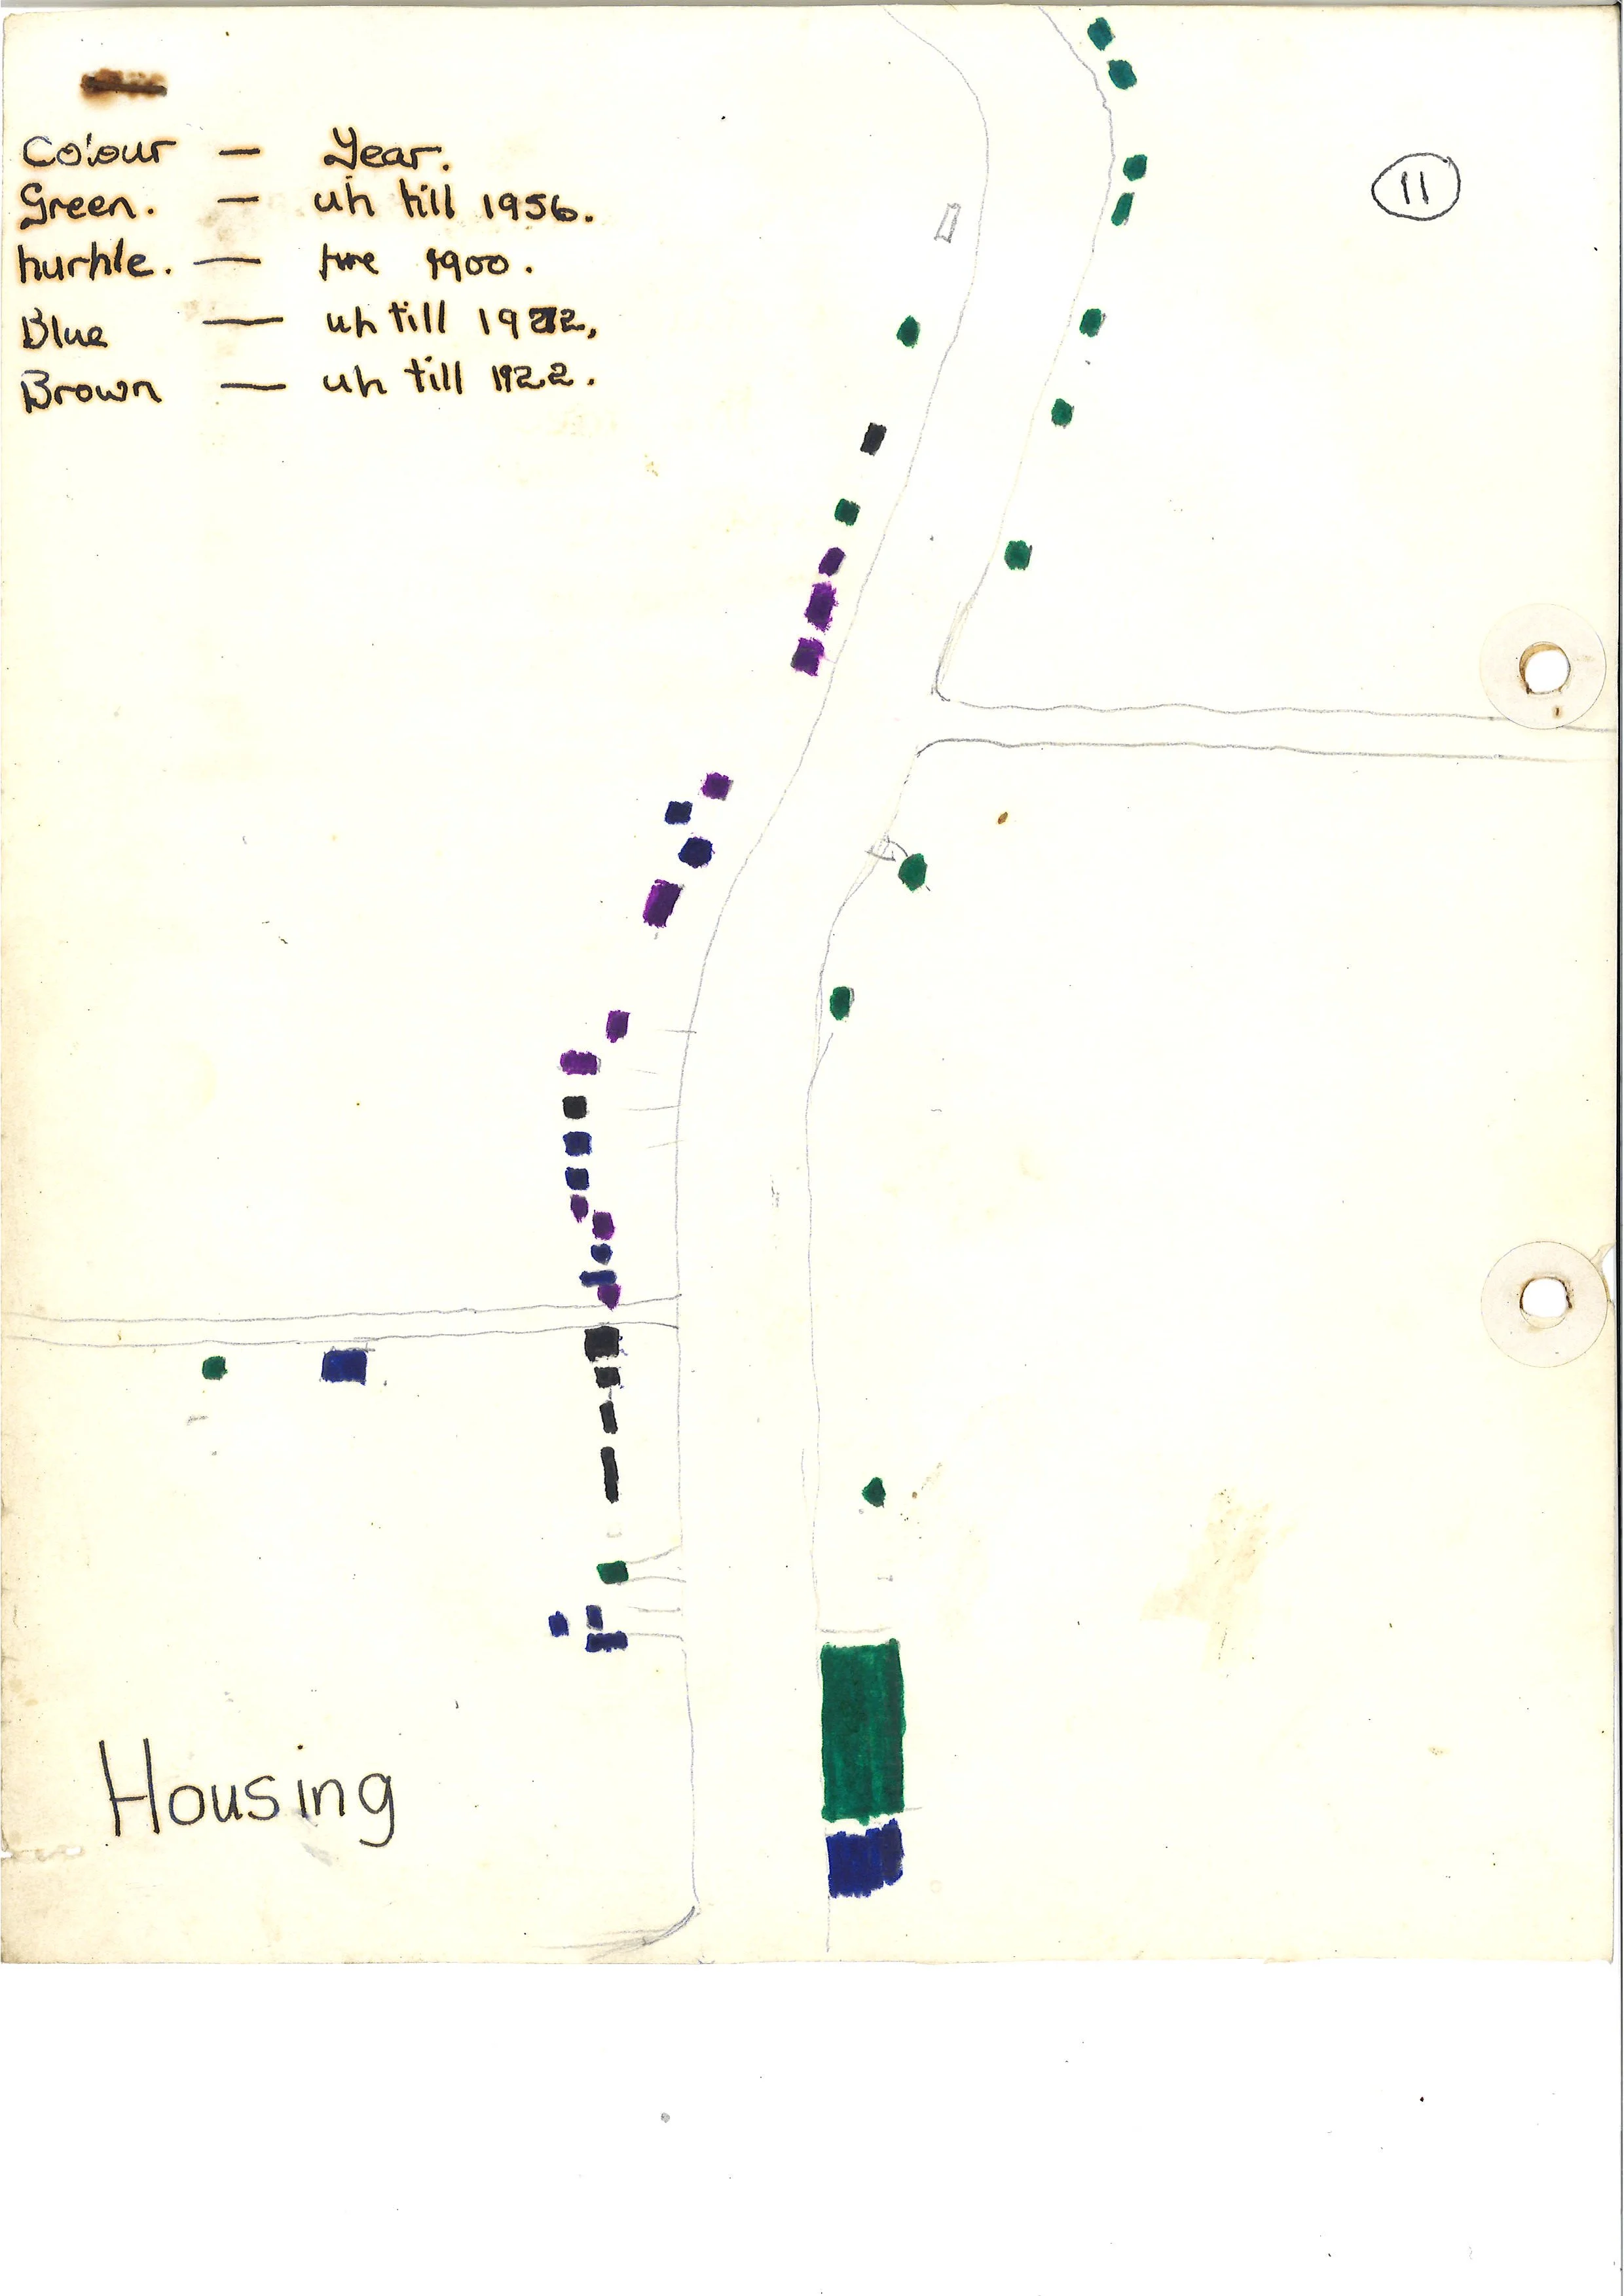 Colour — Year.
Green. — up till 1956.
purple. — pre 1900.
Blue — up till
Brown — up till 1922.
11
Housing